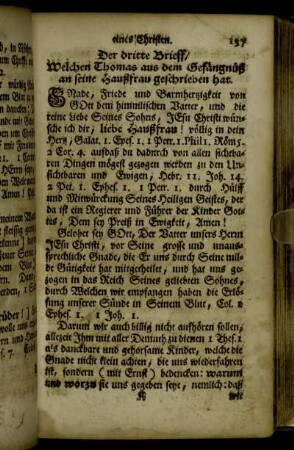 eines Christen. 157
Der dritte Brieff/
Welchen Thomas aus dem Gefängnüß
an seine Haußfrau geschrieben hat.
GNade, Friede und Barmhertzigkeit von
GOtt dem himmlischen Vatter, und die
reine liebe Seines Sohns, JEsu Christi wün-
sche ich dir, liebe Haußfrau! völlig in dein
Hertz, Galat. 1. Epes. 1. 1 Petr. 1. Phil 1. Röm 5.
2 Cor. 4. ausdaß du dardurch von allen sicht-
baren Dingen mögest gezogen werden zu den Un-
sichtbaren und Ewigen, Hebr. 11. Joh. 14.
2 Pet. 1. Ephes. 1. 1 Petr. 1. durch Hülff
und Mitwürckung Seines Heiligen Geistes, der
da ist ein Regierer und Führer der Kinder Got-
tes, Dem sey Preiß in Ewigkeit, Amen!
Gelobet sey GOtt, Der Vatter unsers Herrn
JEsu Christi, vor Seine grosse und unaus-
sprechliche Gnade, die Er uns durch Seine mil-
de Gütigkeit hat mitgetheilet, und hat uns ge-
zogen in das Reich Seines geliebten Sohnes,
durch Welchen wir empfangen haben die Erlö-
sung unserer Sünde in Seinem Blut, Col. 1
Ephes. 1. 1 Joh. 1.
Darum wir auch billig nicht aufhören sollen,
allezeit Ihm mit aller Demuth zu dienen 1 Thes. 1
als danckbare und gehorsame Kinder, welche die
Gnade nicht klein achten, die uns wiederfahren
ist, sondern (mit Ernst) bedencken: warum
und worzu sie uns gegeben seye, nemlich: daß
wir